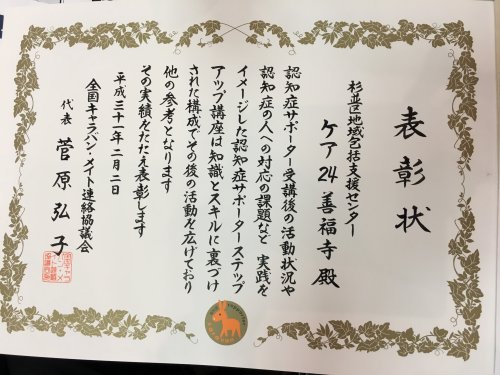 表彰状
杉並区地域包括支援センター
ケア24善福寺 殿
認知症サポーター受講後の活動状況や
認知症の人への対応の課題など 実践を
イメージした認知症サポーターステップ
アップ講座は知識とスキルに裏づけ
された構成でその後の活動を広げており
他の参考となります
その実績をたたえ表彰します
平成三十一年二月二日
全国キャラバン・メイト連絡協議会
代表 菅原弘子